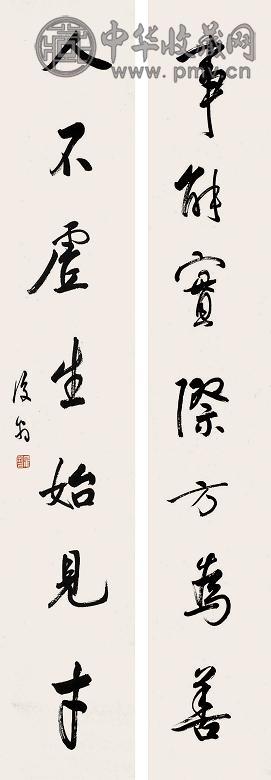 中华收藏网
www.pmcv.cn
事能實際方為善
人不虛生始見才
復翁